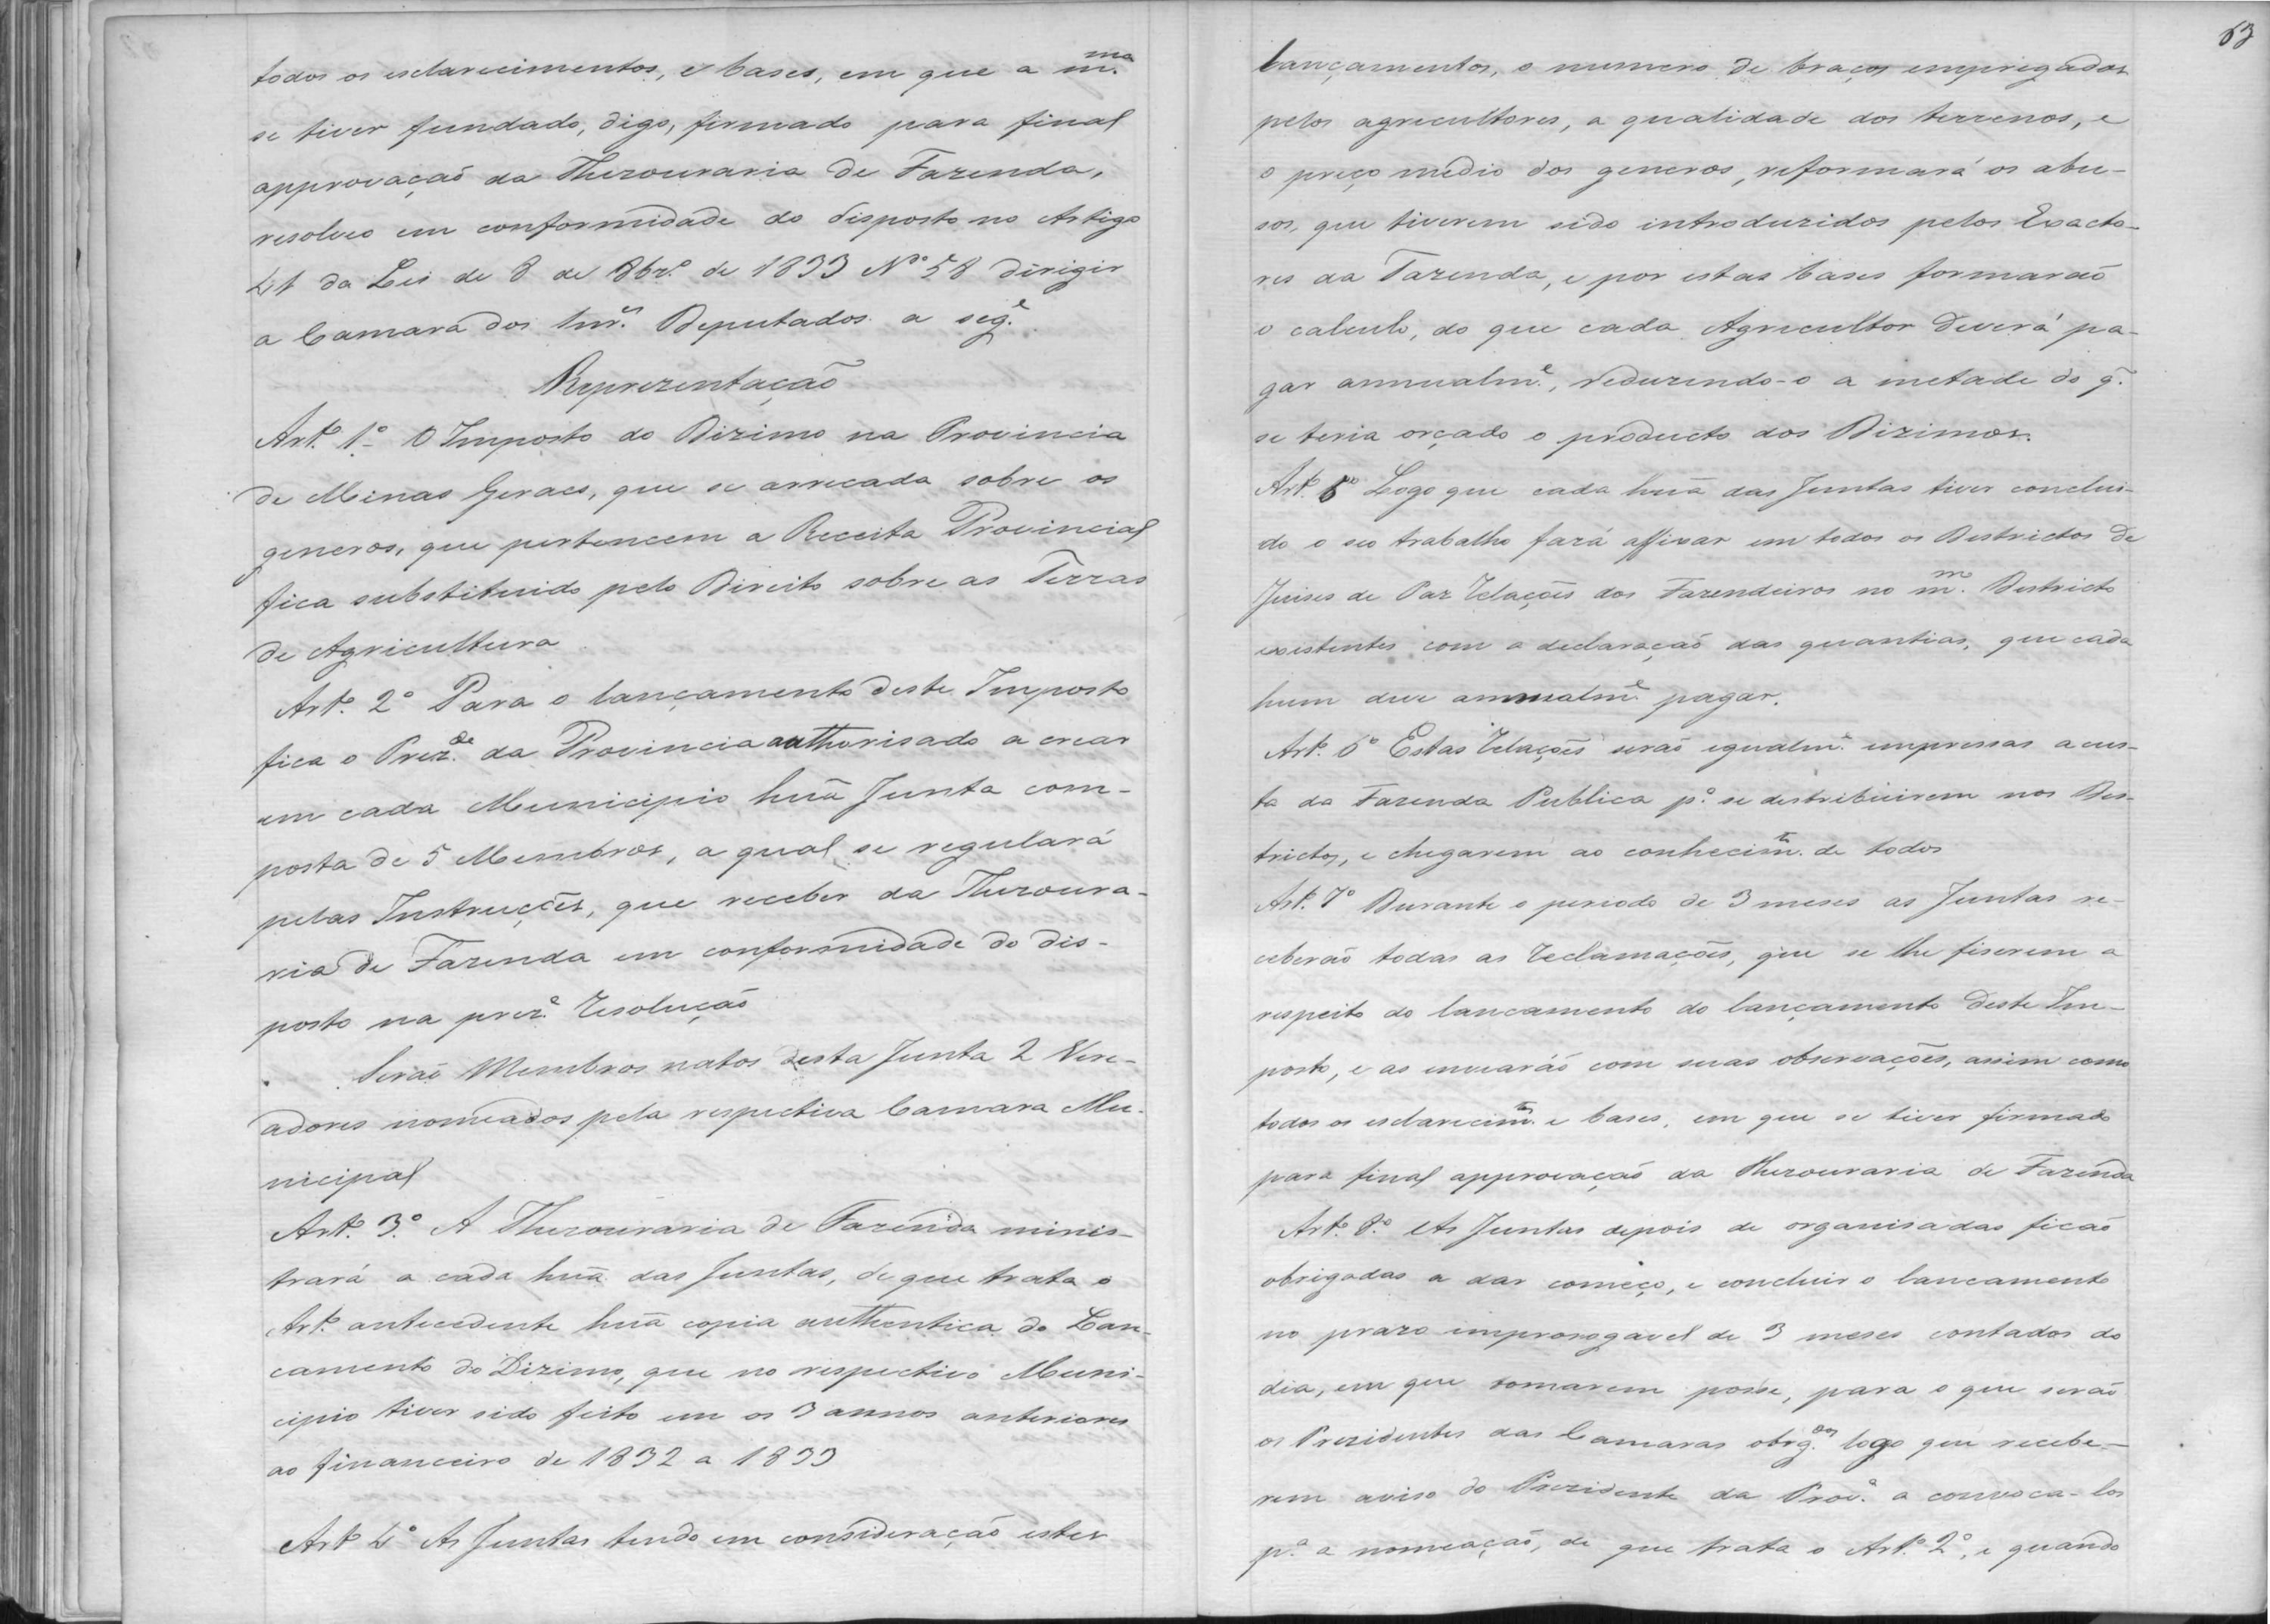 todos os esclarecimentos, e bases, em que a m.ma
se tiver fundado, digo, firmado para final
approvação da Thezouraria de Fazenda,
resolveo em conformidade do disposto no Artigo
41 da Lei de 8 de 8br.o de 1833 No 58 dirigir
a Camara dos Snr.es Deputados a seg.e
Reprezentação
Art.o 1.o O Imposto do Dizimo na Provincia
de Minas Geraes, que se arrecada sobre os
generos, que pertencem a Receita Provincial
fica substituido pelo Direito sobre as Terras
de Agricultura
Art.o 2o Para o lançamento deste Imposto
fica o Prez.de da Provincia authorisado a crear
em cada Municipio huã Junta com-
posta de 5 Membros, a qual se regulará
pelas Instrucções, que receber da Thezoura-
ria de Fazenda em conformidade do dis-
posto na prez.e Resolução
Serão Membros natos desta Junta 2 Vere-
adores nomeados pela respectiva Camara Mu-
nicipal
Art.o 3.o A Thezouraria de Fazenda minis-
trará a cada huã das Juntas, de que trata o
Art.o antecedente huã copia authentica do Lan-
camento do Dizimo, que no respectivo Muni-
cipio tiver sido feito em os 3 annos anteriores
ao financeiro de 1832 a 1833
Art.o 4o As Juntas tendo em consideração estes
63
lançamentos, o numero de braços empregados
pelos agricultores, a qualidade dos terrenos, e
o preço medio dos generos, reformará os abu-
sos, que tiverem sido introduzidos pelos Exacto-
res da Fazenda, e por estas bases formarão
o calculo, do que cada Agricultor deverá pa-
gar annualm.e, reduzindo-o a metade do q.
se teria orçado o producto dos Dizimos.
Art.o 5o Logo que cada huã das Juntas tiver conclui-
do o seo trabalho fará affixar em todos os Destrictos de
Juises de Paz Relações dos Fazendeiros no m.mo Destricto
existentes com a declaração das quantias, que cada
hum deve annualm.e pagar.
Art.o 6o Estas Relações serão igualm.e impressas a cus-
ta da Fazenda Publica p.a se distribuirem nos Des-
trictos, e chegarem ao conhecim.to de todos
Art.o 7o Durante o periodo de 3 meses as Juntas re-
ceberão todas as reclamações, que se lhe fiserem a
respeito do lancamento do lançamento deste Im-
posto, e as enviarão com suas observações, assim como
todos os esclarecim.tos e bases, em que se tiver firmado
para final approvação da Thezouraria de Fazenda
Art.o 8.o As Juntas depois de organisadas ficão
obrigadas a dar começo, e concluir o lancamento
no prazo improrogavel de 3 meses contados do
dia, em que tomarem posse, para o que serão
os Prezidentes das Camaras obrig.dos logo que recebe-
rem aviso do Prezidente da Prov.a a convoca-los
p.a a nomeação, de que trata o Art.o 2o, e quando